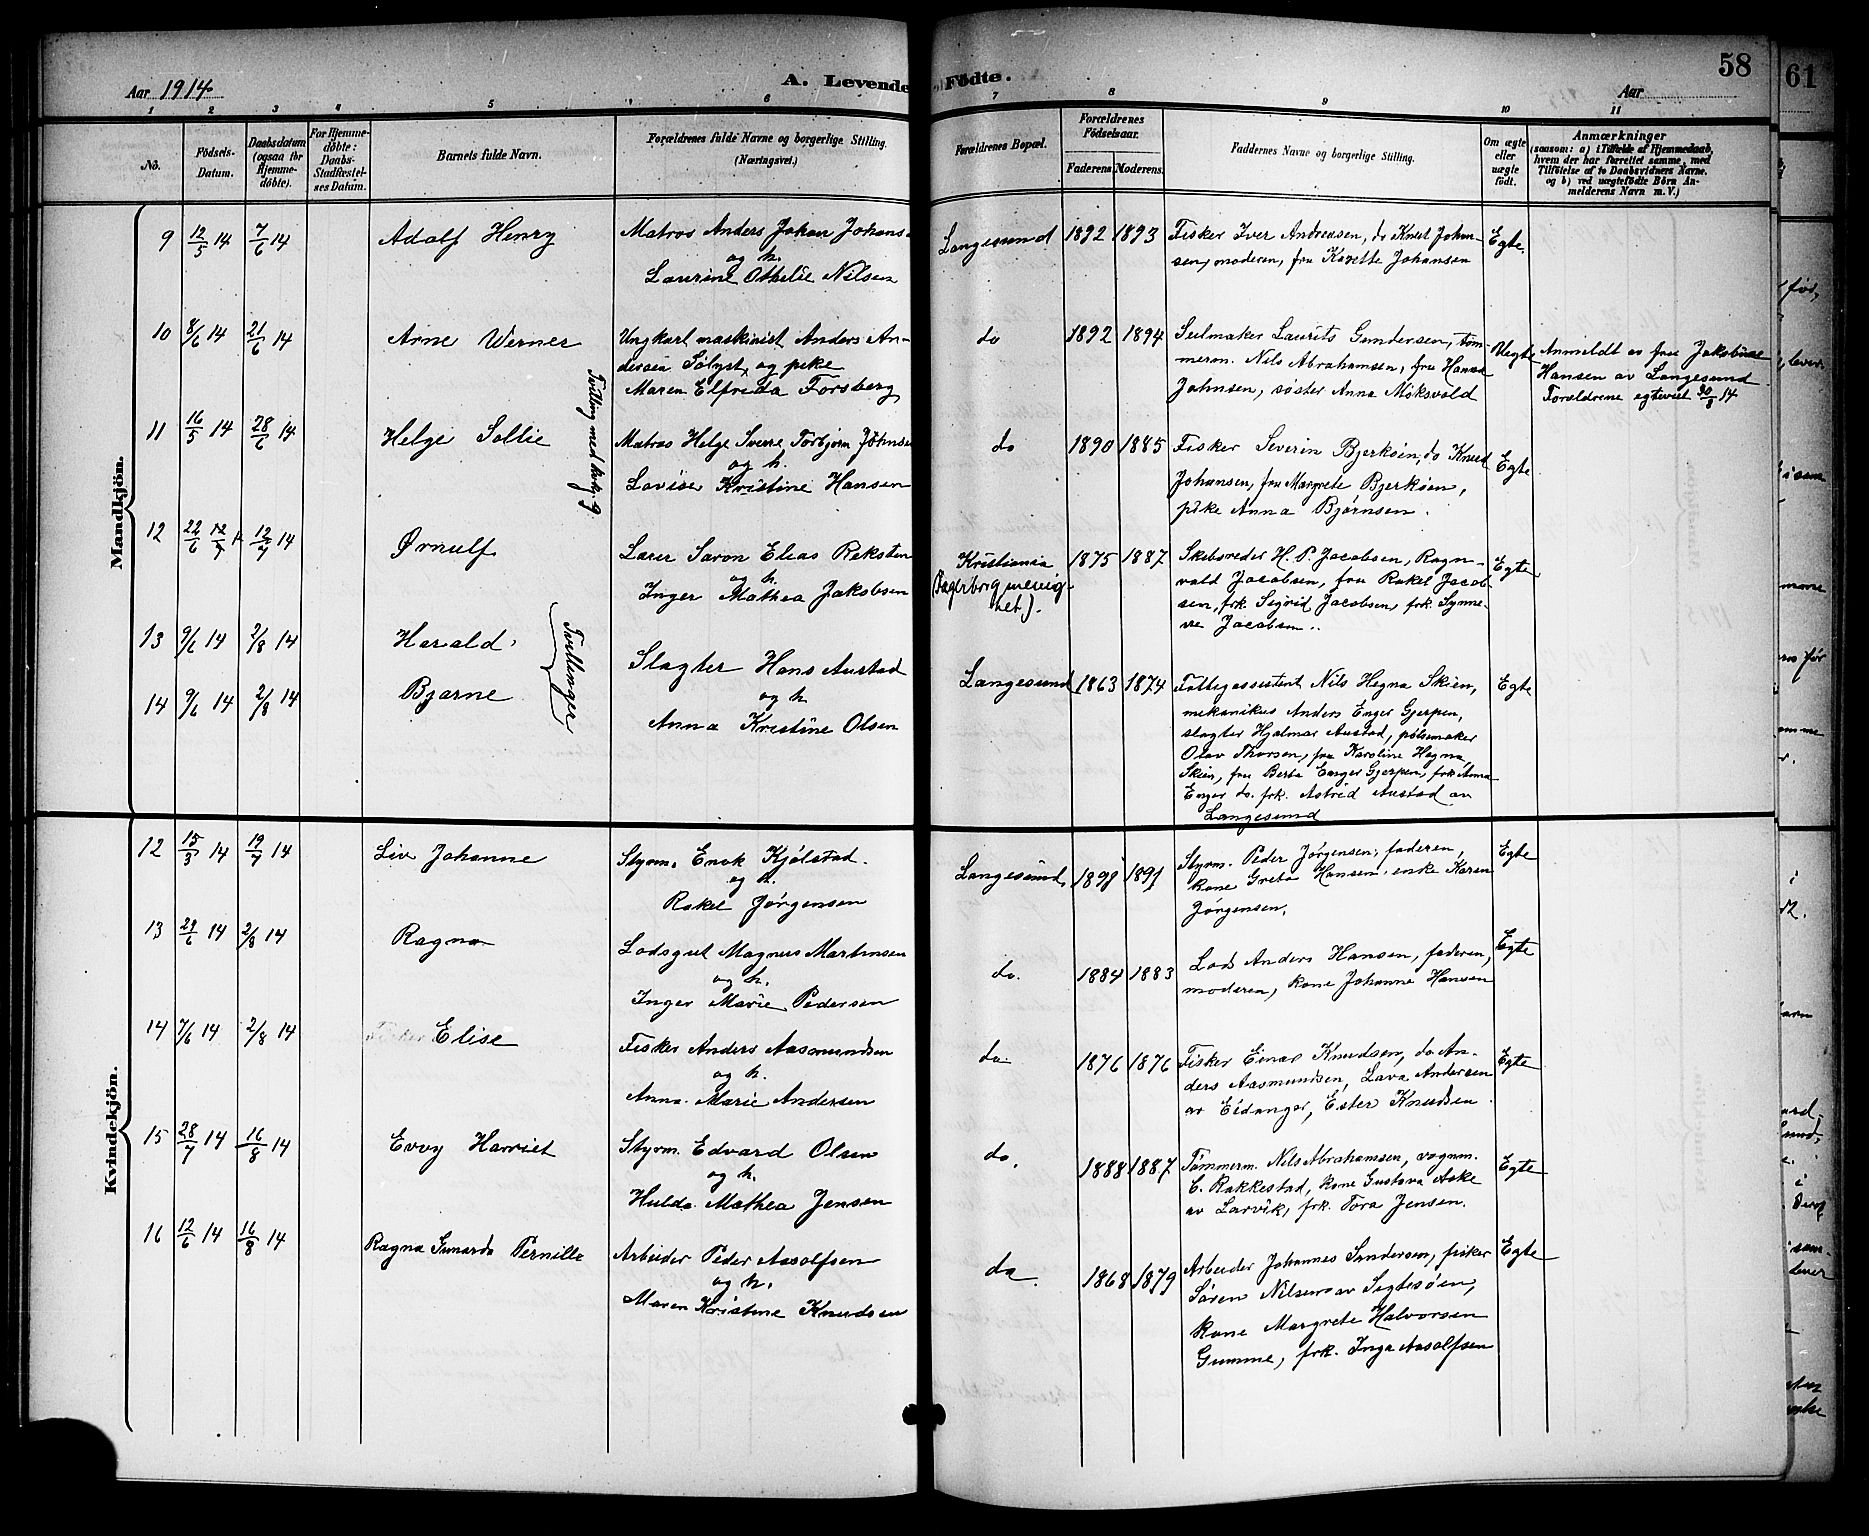 58
61
Aar 1914.
A. Levende Födte.
Aar
1 2 3 4 5 6 7 8 9 10 11
No.
Födsels-
Datum.
Daabsdatum
(ogsaa for
Hjemme-
döbte).
For Hjemme-
döbte:
Daabs-
Stadfæstel-
ses Datum.
Barnets fulde Navn.
Forældrenes fulde Navne og borgerlige Stilling.
(Næringsvei.)
Forældrenes Bopæl.
Forældrenes
Födselsaar.
Faderens. Moderens.
Faddernes Navne og borgerlige Stilling.
Om ægte
eller
uægte
födt.
Anmærkninger
(saasom: a) i Tilfælde af Hjemmedaab,
hvem der har forrettet samme, med
Tilföielse af to Daabsvidners Navne.
og b) ved uægtefödte Börn An-
melderens Navn m. V.)
Mandkjön.
9 12/5 14 7/6 14 Adolf Henry
Matros Anders Johan Johans
og h.
Laurine Othelie Nilsen
Langesund 1892 1893
Fisker Iver Andreasen, do Knut Johan-
sen, moderen, fru Karette Johansen
Egte.
10 8/6 14 21/6 14 Arne Werner
Ungkarl maskinist Anders An-
dersen Sølyst, og pike
Maren Elfreda Forsberg
do 1892 1894
Seilmaker Laurits Gundersen, tøm-
merm. Nils Abrahamsen, fru Hanna
Johnsen, søster Anna Møksvold
Uegte
Anmeldt av fru Jakobine
Hansen av Langesund
Forældrene egteviet 30/8 14
Tvilling med kvkj. 9
11 16/5 14 28/6 14 Helge Sollie
Matros Helge Sverre Torbjørn Johnsen
og h.
Lovise Kristine Hansen
do 1890 1885
Fisker Severin Bjerkøen, do Knud
Johansen, fru Margrete Bjerkøen,
pike Anna Bjørnsen.
Egte
12 22/6 12/7 14 Ørnulf
Lærer Saron Elias Reksten
og h.
Inger Mathea Jakobsen
Kristiania
(Fagerborg menig-
het).
1875 1887
Skibsreder H. P. Jacobsen, Ragn-
vald Jacobsen, fru Rakel Jacob-
sen, frk. Sigrid Jacobsen, frk. Synnø-
ve Jacobsen.
Egte
13 9/6 14 2/8 14 Harald
14 9/6 14 2/8 14 Bjarne
Tvillinger
Slagter Hans Austad
og h
Anna Kristine Olsen
Langesund 1863 1874
Fattigassistent Nils Hegna Skien,
mekanikus Anders Enger Gjerpen,
slagter Hjalmar Austad, pølsemaker
Olav Thorsen, fru Karoline Hegna,
Skien, fru Berta Enger Gjerpen, frk Anna
Enger do. frk. Astrid Austad av
Langesund
Egte
Kvindekjön.
12 15/3 14 19/7 14 Liv Johanne
Styrm. Enok Kjølstad.
og h.
Rakel Jørgensen
Langesund, 1898 1891
Styrm. Peder Jørgensen, faderen,
kone Greta Hansen, enke Karen
Jørgensen.
Egte
13 29/6 14 2/8 14 Ragna
Lodsgut Magnus Martinsen
og h.
Inger Marie Pedersen
do. 1884 1883
Lods Anders Hansen, faderen,
moderen, kone Johanne Hansen
Egte
14 7/6 14 2/8 14 Elise
Fisker Anders Aasmundsen
og h.
Anna Marie Andersen
do 1876 1876
Fisker Einar Knudsen, do An-
ders Aasmundsen, Lava Andersen
av Eidanger, Ester Knudsen
Egte
15 28/7 14 16/8 14 Evvy Harriet
Styrm. Edvard Olsen
og h.
Hulda Mathea Jensen
do. 1888 1887
Tømmerm. Nils Abrahamsen, vognm.
C. Rakkestad, kone Gustava Aske
av Larvik, frk. Tora Jensen.
Egte
16 12/6 14 16/8 14 Ragna Gunarda Pernille
Arbeider Peder Aasolfsen
og h.
Maren Kristine Knudsen
do. 1868 1879
Arbeider Johannes Sundersen, fisker
Søren Nilsen av Sigtesøen,
kone Margrete Halvorsen
Gumme, frk. Inga Aasolfsen
Egte